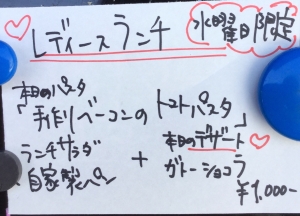 レディースランチ
水曜日限定
本日のパスタ
「手作りベーコンの トマトパスタ」
ランチサラダ
自家製パン
+
本日のデザート
ガトーショコラ
¥1,000-